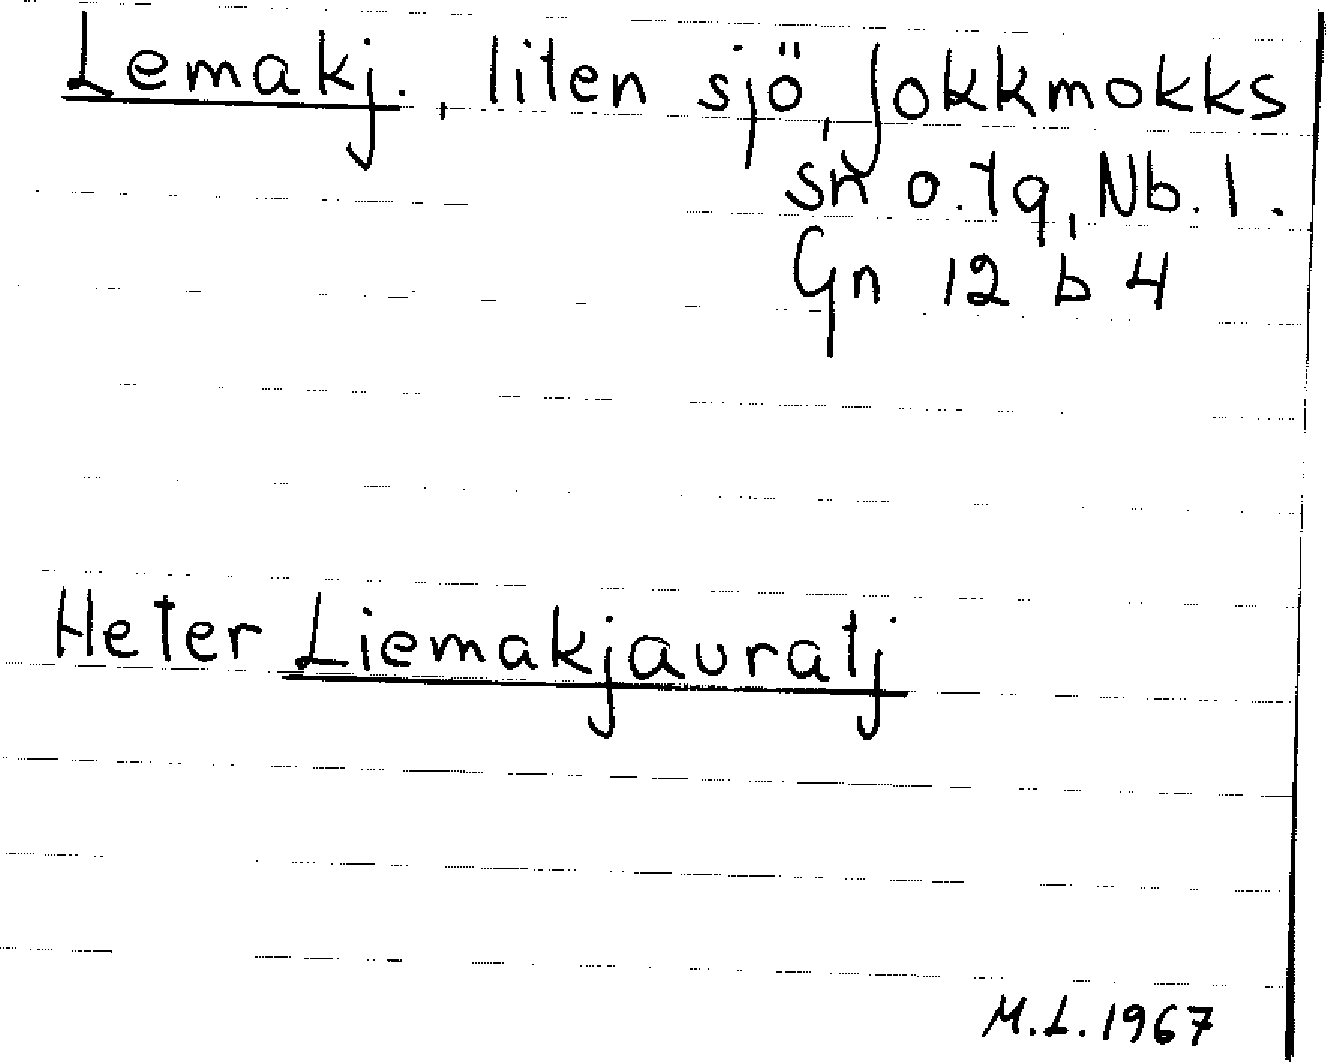 Lemakj., liten sjö, Jokkmokks
sn o. tg, Nb. l.
Gn 12 b 4
Heter Liemakjauratj
M.L. 1967